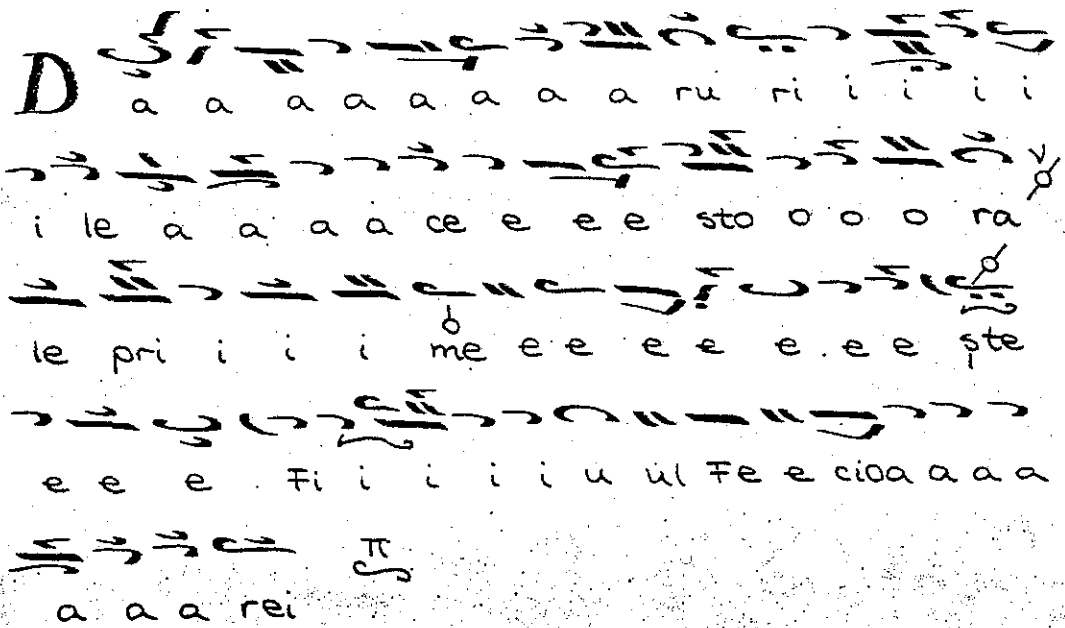 D a a a a a a a a ru ri i i i i
i le a a a a ce e e e sto o o o ra
le pri i i i me e e e e e e e ste
e e e Fi i i i i u ul Fe e cioa a a a
a a a rei π